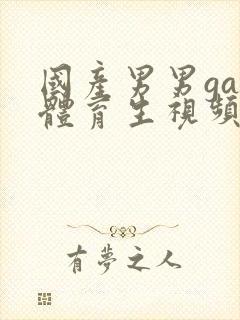 國産男男ga
體育生視頻
有夢之人